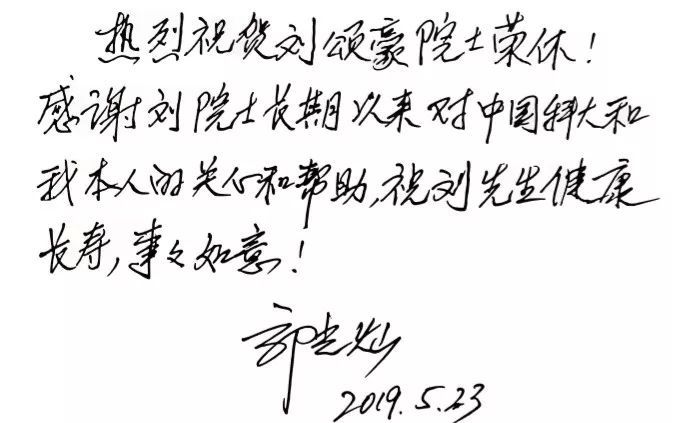 热烈祝贺刘颂豪院士荣休！
感谢刘院士长期以来对中国科大和
我本人的关心和帮助,祝刘先生健康
长寿,事々如意！
郭光灿
2019.5.23